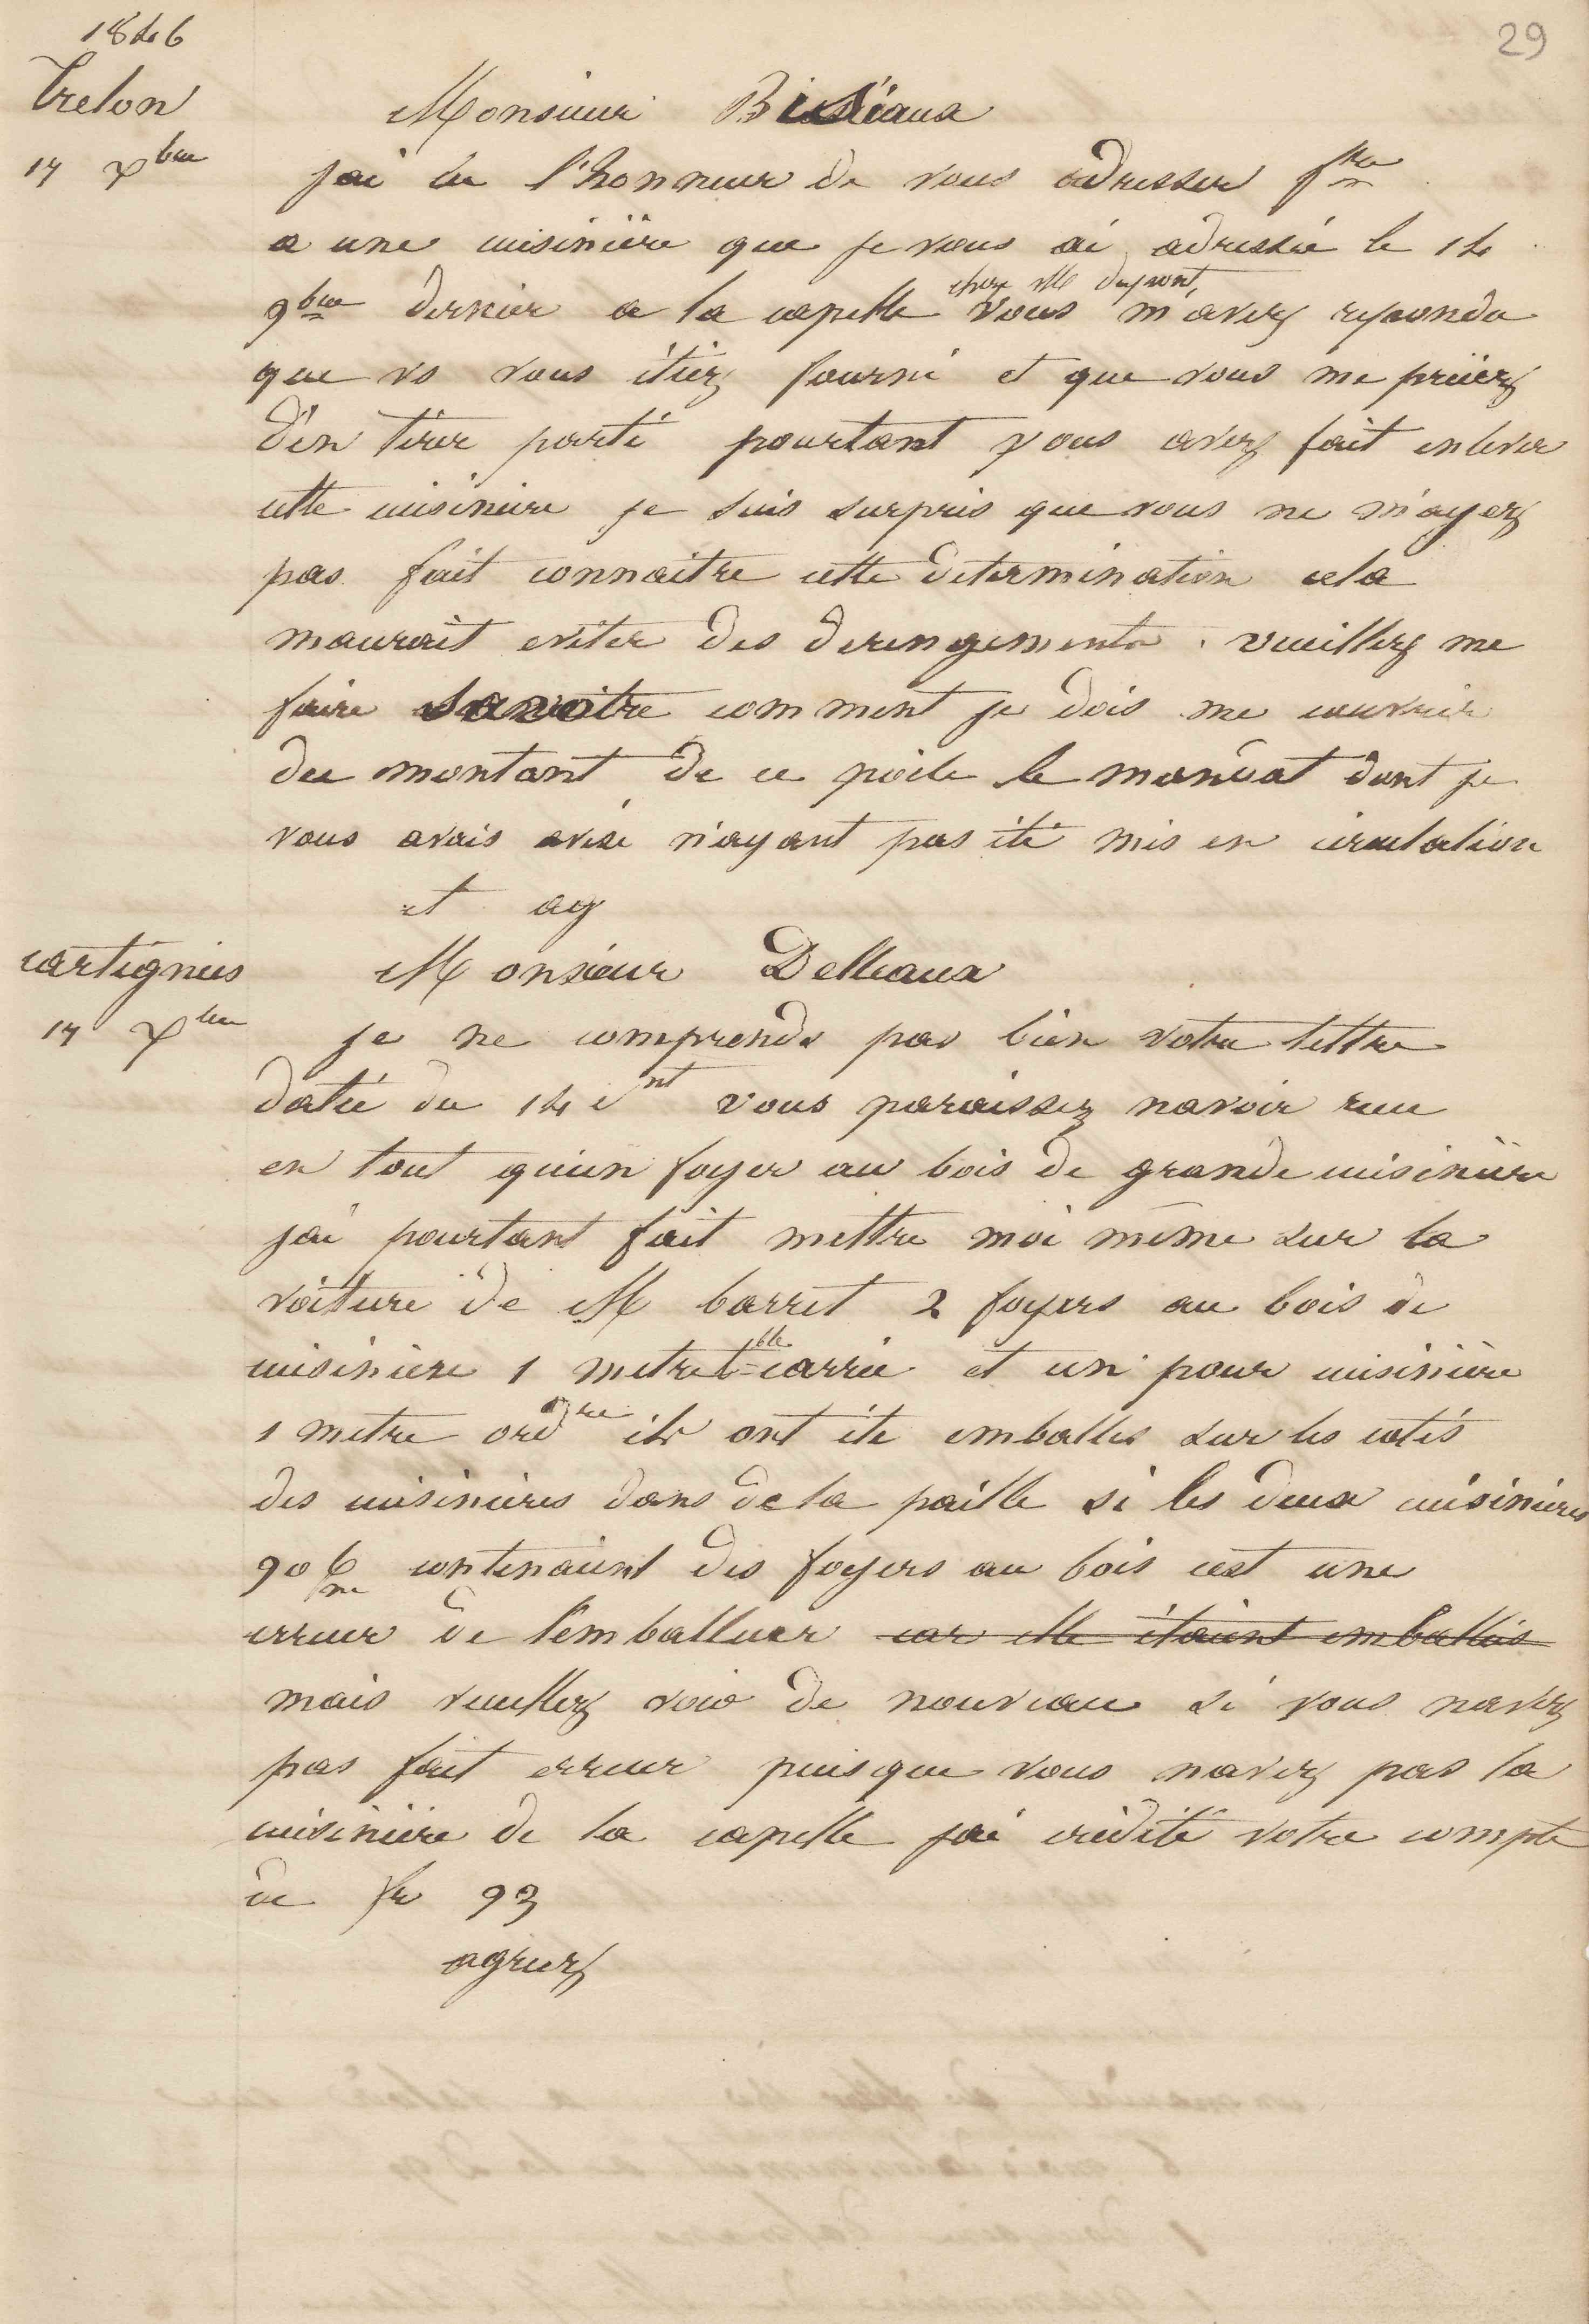 29
1846
Trelon
17 Xbre
Monsieur Bisiaux
jai eu l'honneur de vous adresser fre
a une cuisinière que je vous ai adressée le 14
chez Mr dupont
9bre dernier a la capelle vous m'avez repondu
que vs vous étiez fourni et que vous me priiez
d'en tirer parti pourtant vous avez fait enlever
cette cuisiniere je suis surpris que vous ne m'ayez
pas fait connaitre cette determination cela
maurait eviter des derengements . veuillez me
faire savoitre comment je dois me couvrir
du montant de ce poële le mandat dont je
vous avais avisé n'ayant pas été mis en circulation
et ag
cartignies
17 Xbre
Monsieur Delleaux
je ne comprends pas bien votre lettre
datée du 14 ct vous paraissez navoir recu
en tout qu'un foyer au bois de grande cuisinière
jai pourtant fait mettre moi même sur la
voiture de M barret 2 foyers au bois de
cuisiniere 1 metre bble carrée et un pour cuisinière
1 metre ordre ils ont été emballes sur les cotés
des cuisinieres dans de la paille si les deux cuisinieres
90 cme contenaient des foyers au bois cest une
erreur de l'emballeur car elle étaient emballés
mais veuillez voir de nouveau si vous navez
pas fait erreur puisque vous navez pas la
cuisinière de la capelle jai crédité votre compte
de fr 93
agreez